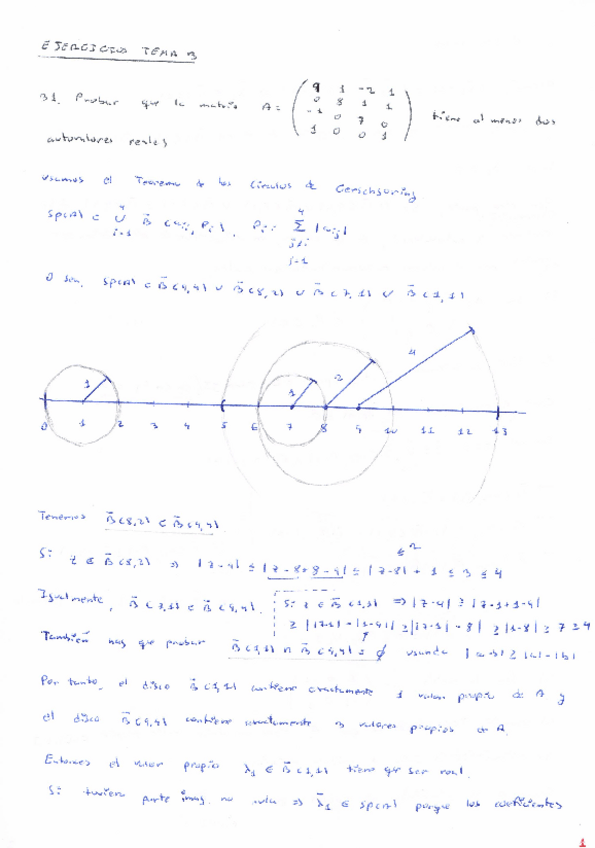 EJERCICIO TEMA 3
31. Probar que la matriz A = ( 9 1 -2 1 tiene al menos dos
0 8 1 1
-1 0 7 0
1 0 0 1 )
autovalores reales
Usamos el Teorema de los círculos de Gerschgoring
Sp(A) ⊂ ∪ B̄ (aii, Pi), Pi = Σ |aij|
O sea, Sp(A) ⊂ B̄(9,4) ∪ B̄(8,2) ∪ B̄(7,1) ∪ B̄(1,1)
1 1 2 4
0 1 2 3 4 5 6 7 8 9 10 11 12 13
Tenemos B̄(8,2) ⊂ B̄(9,4)
≤ 2
Si z ∈ B̄(8,2) ⇒ |z-9| ≤ |z-8+8-9| ≤ |z-8| + 1 ≤ 3 ≤ 4
Igualmente, B̄(7,1) ⊂ B̄(9,4). Si z ∈ B̄(1,1) ⇒ |z-9| ≥ |z-1+1-9|
≥ ||z-1| - |1-9|| ≥ ||z-1| - 8| ≥ |1-8| ≥ 7 ≥ 4
También hay que probar B̄(1,1) ∩ B̄(9,4) = ∅ usando |a-b| ≥ |a|-|b|
Por tanto, el disco B̄(1,1) contiene exactamente 1 valor propio de A y
el disco B̄(9,4) contiene exactamente 3 valores propios de A.
Entonces el valor propio λ1 ∈ B̄(1,1) tiene que ser real.
Si tuviera parte imag. no nula ⇒ λ̄1 ∈ Sp(A) porque los coeficientes
1